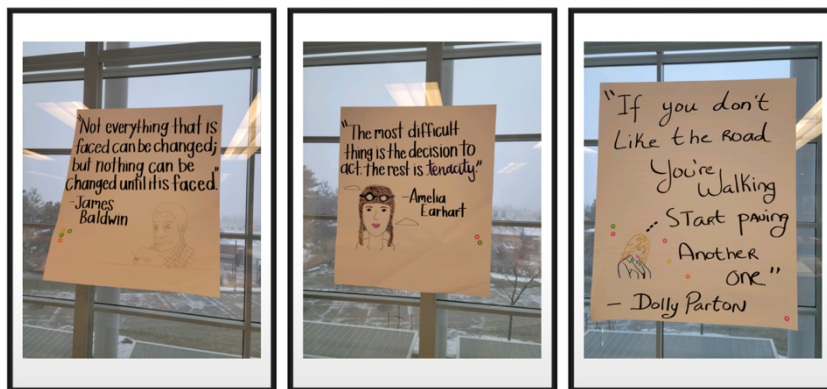 "Not everything that is
faced can be changed;
but nothing can be
changed until it is faced."
-James
Baldwin
"The most difficult
thing is the decision to
act. the rest is tenacity."
-Amelia
Earhart
"If you don't
Like the Road
You're
Walking
START pAving
Another
one"
- Dolly Parton